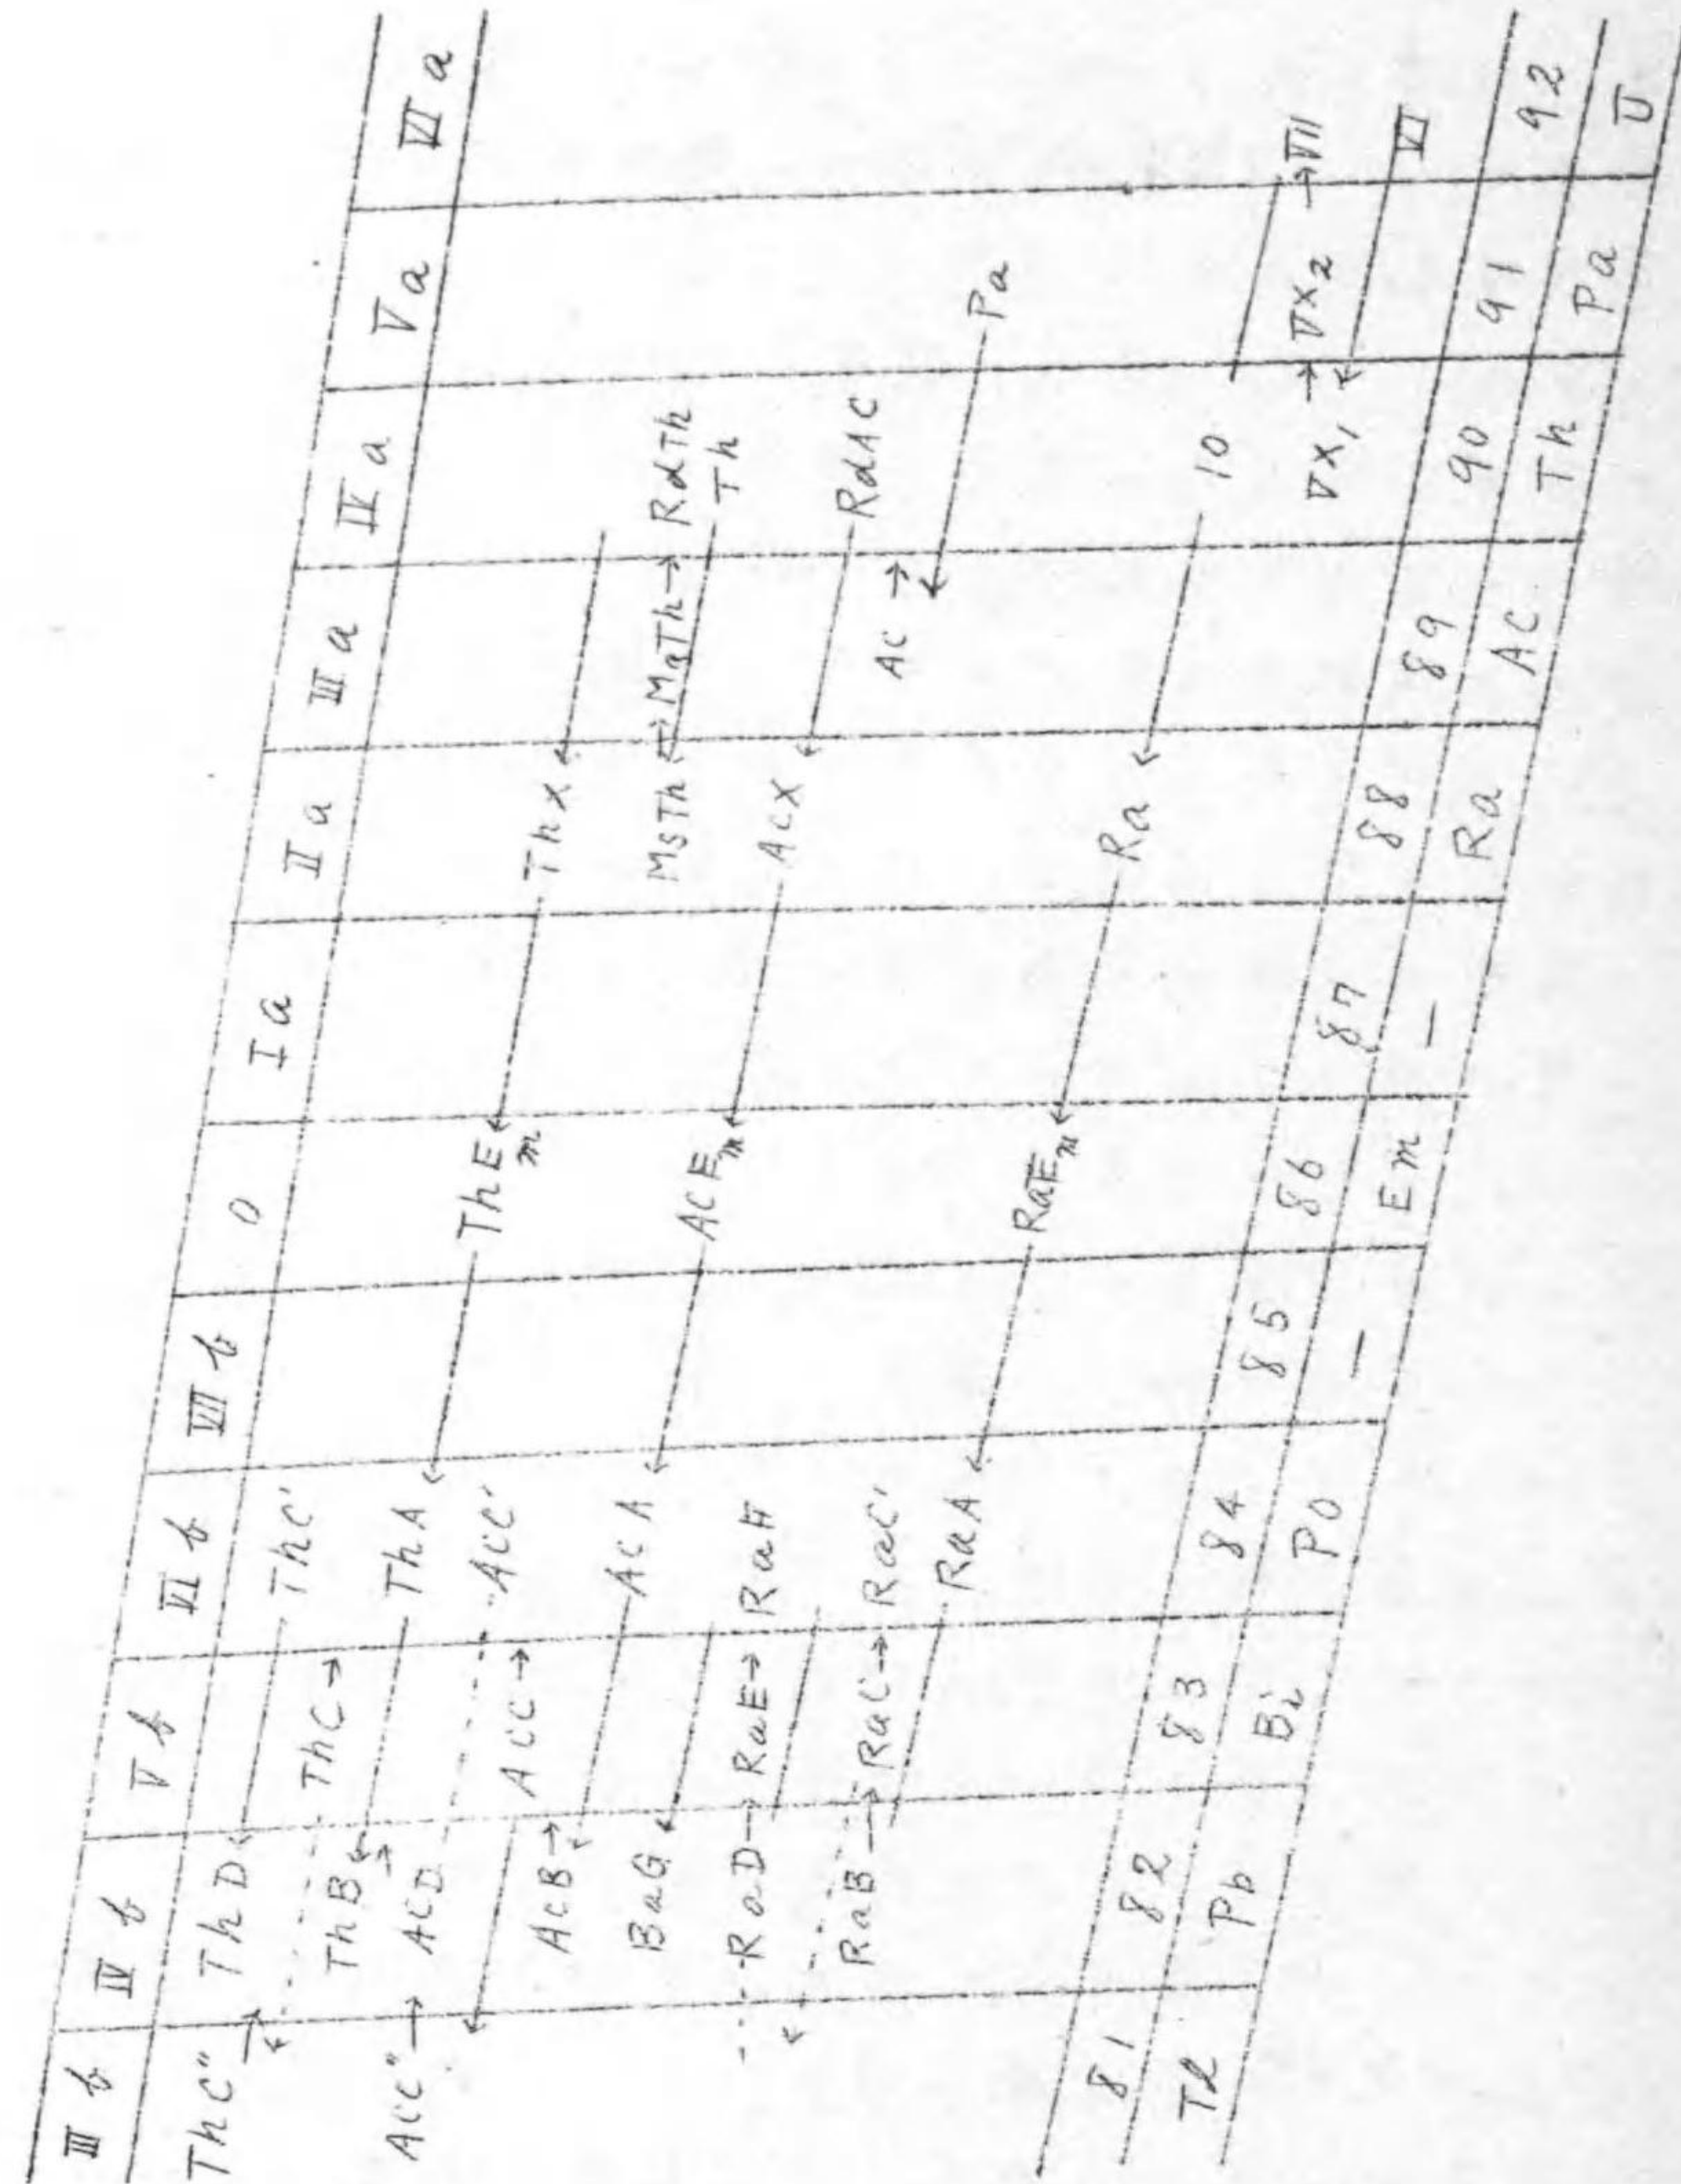 III b IV b V b VI b VII b 0 I a II a III a IV a V a VI a
ThC" → ThD ← ThC'
ThB ThC → ThA ← ThEm ← ThX ←
AcC" → AcD AcC'
AcB → AcC → AcA ← ACEm ← AcX ← RdAC
MsTh MsTh → RdTh
Th
BaG ←
RaD → RaE → RaF
Ac → ← Pa
RaB → RaC → RaC'
RaA ← RaEm ← Ra ← 10
UX1 → UX2 → UII
UI
81 82 83 84 85 86 87 88 89 90 91 92
Tl Pb Bi PO — Em — Ra AC Th Pa U